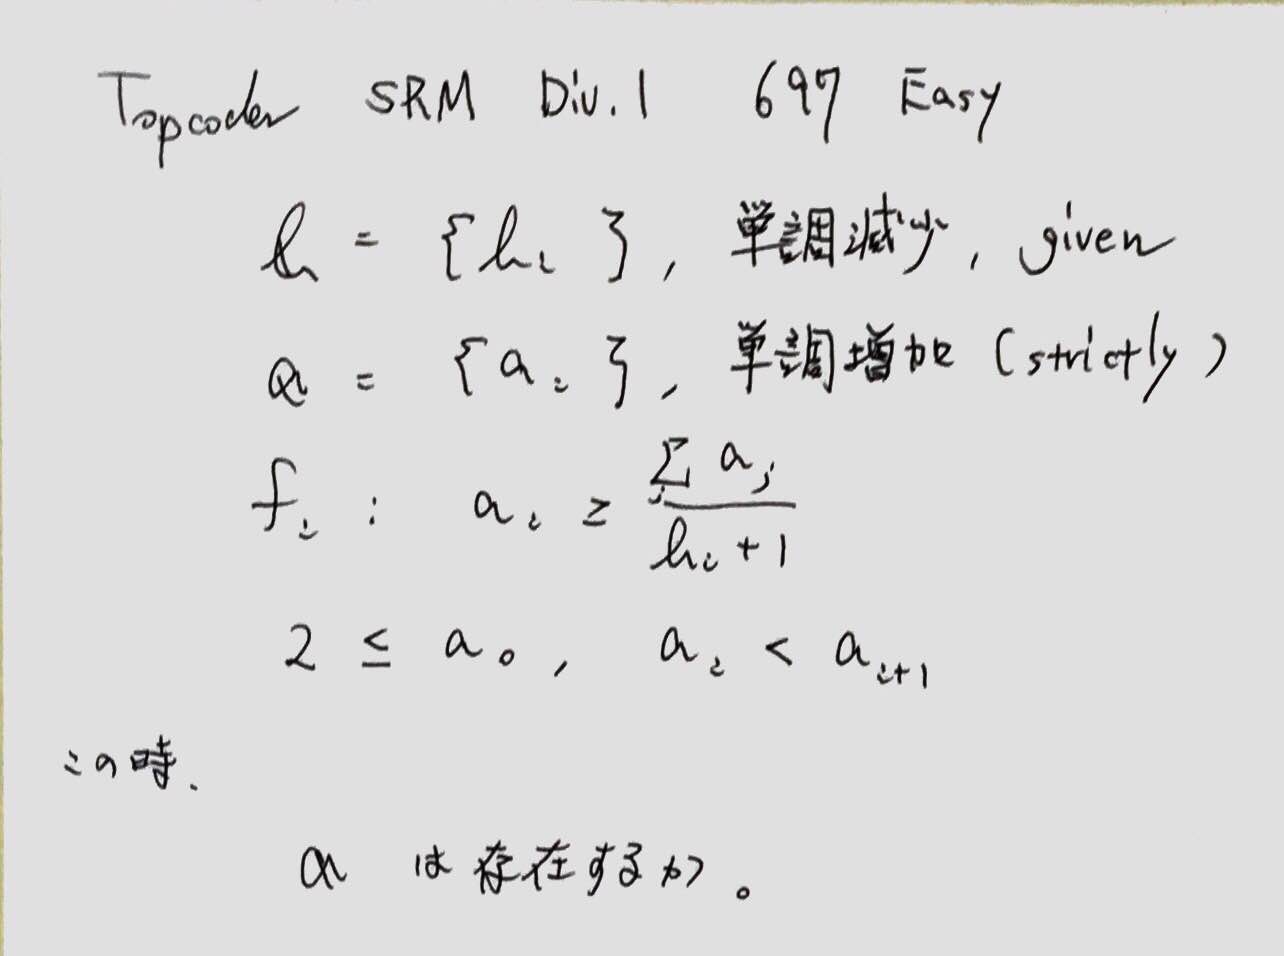 Topcoder SRM Div.1 697 Easy
h = {h_i}, 単調減少, given
a = {a_i}, 単調増加 (strictly)
f_i : a_i ≥ Σ_j a_j / (h_i + 1)
2 ≤ a_0, a_i < a_{i+1}
この時、
a は存在するか。